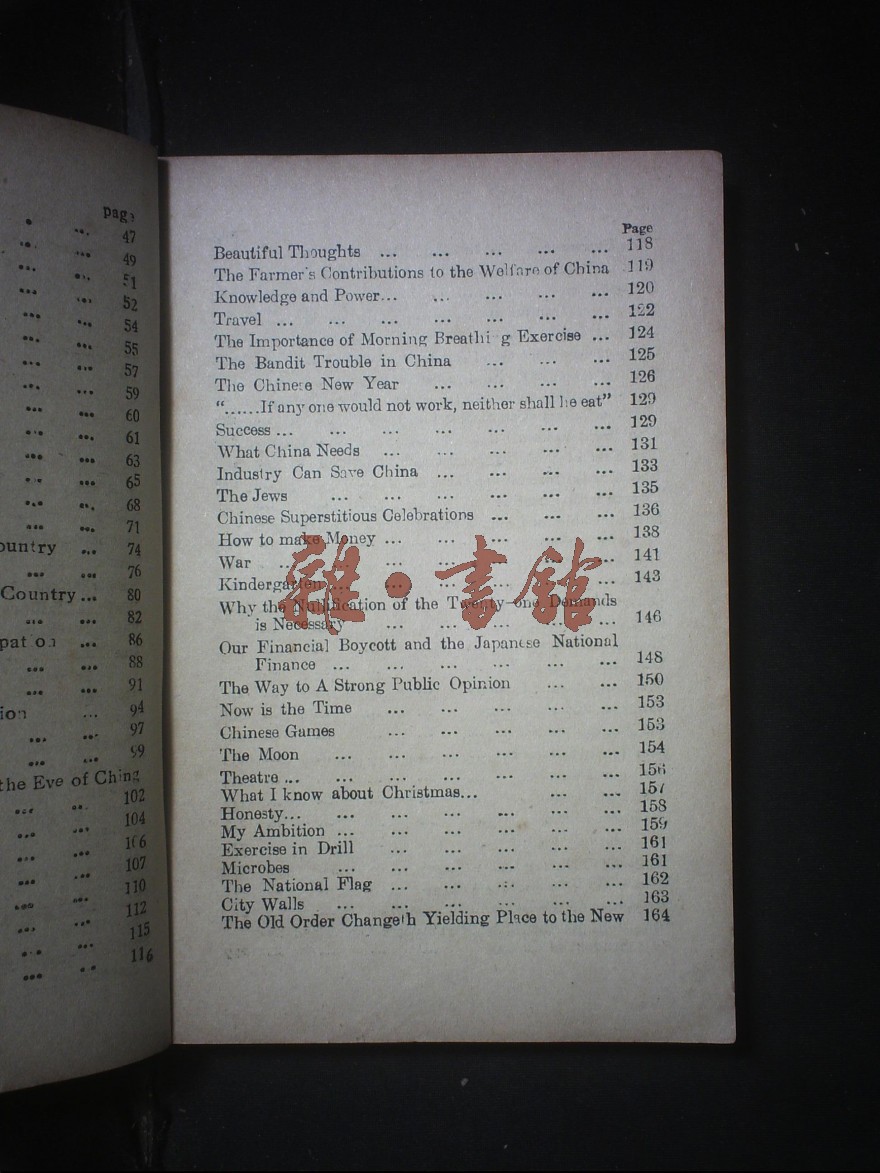 pag
47
49
51
52
54
55
57
59
60
61
63
65
68
71
ountry ... 74
76
Country ... 80
82
pat o ... 86
88
91
ion ... 94
97
99
the Eve of Ching
102
104
106
107
110
112
115
116
Page
Beautiful Thoughts ... ... ... ... ... 118
The Farmer's Contributions to the Welfare of China 119
Knowledge and Power... ... ... ... ... 120
Travel ... ... ... ... ... ... ... 122
The Importance of Morning Breathi g Exercise ... 124
The Bandit Trouble in China ... ... ... 125
The Chinese New Year ... ... ... ... 126
“......If any one would not work, neither shall he eat” 129
Success ... ... ... ... ... ... ... 129
What China Needs ... ... ... ... ... 131
Industry Can Save China ... ... ... ... 133
The Jews ... ... ... ... ... ... 135
Chinese Superstitious Celebrations ... ... ... 136
How to make Money ... ... ... ... ... 138
War ... ... ... ... ... ... ... 141
Kindergarten ... ... ... ... ... ... 143
Why the Nullification of the Twenty-one Demands
is Necessary ... ... ... ... ... 146
Our Financial Boycott and the Japanese National
Finance ... ... ... ... ... ... 148
The Way to A Strong Public Opinion ... ... 150
Now is the Time ... ... ... ... ... 153
Chinese Games ... ... ... ... ... 153
The Moon ... ... ... ... ... ... 154
Theatre ... ... ... ... ... ... ... 156
What I know about Christmas... ... ... 157
Honesty... ... ... ... ... ... ... 158
My Ambition ... ... ... ... ... ... 159
Exercise in Drill ... ... ... ... ... 161
Microbes ... ... ... ... ... ... 161
The National Flag ... ... ... ... ... 162
City Walls ... ... ... ... ... ... 163
The Old Order Changeth Yielding Place to the New 164
雜·書館